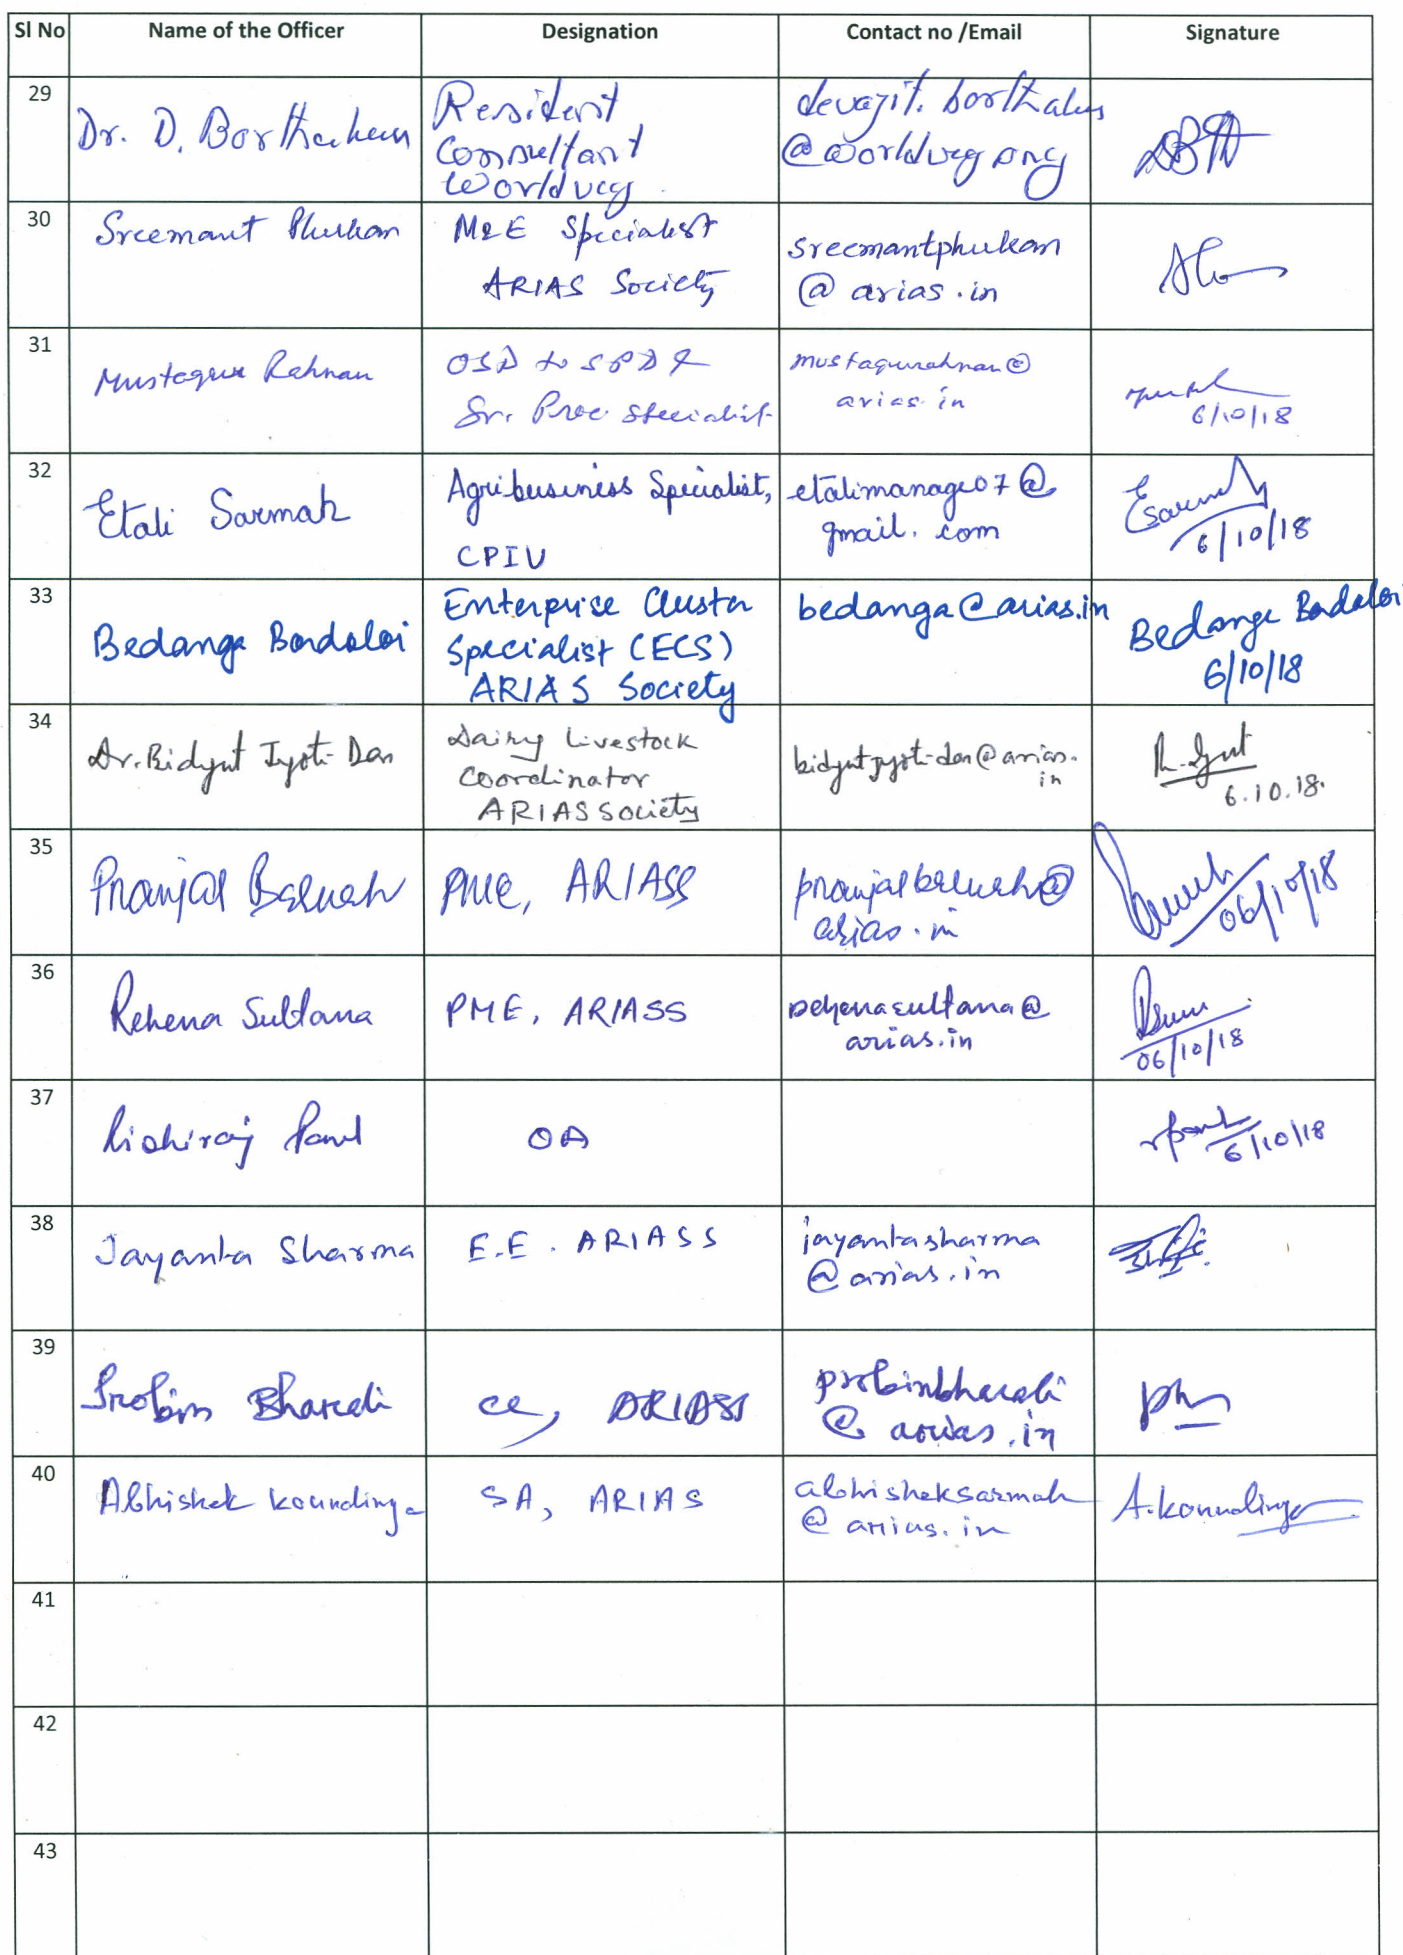 Sl No Name of the Officer Designation Contact no /Email Signature
29
Dr. D. Borthakur
Resident
Consultant
Worldveg
devajit. borthakur
@worldveg.org
30
Sreemant Phukan
M&E Specialist
ARIAS Society
sreemantphukan
@arias.in
31
Mustaqur Rahman
OSD to SPD &
Sr. Proc Specialist
arias.in
6/10/18
32
Etali Sarmah
Agribusiness Specialist,
CPIU
etalimanage07@
gmail.com
Esarmah
6/10/18
33
Bedanga Bordoloi
Enterprise Cluster
Specialist (ECS)
ARIAS Society
bedanga@arias.in
Bedanga Bordoloi
6/10/18
34
Dr. Bidyut Jyoti Das
Dairy Livestock
Coordinator
ARIAS Society
bidyutjyoti-das@arias.
in
6.10.18.
35
Pranjal Baruah
PME, ARIASS
pranjalbaruah@
arias.in
06/10/18
36
Rehena Sultana
PME, ARIASS
rehenasultana@
arias.in
06/10/18
37
Rishiraj Paul
OA
rpaul
6/10/18
38
Jayanta Sharma
E.E. ARIASS
jayantasharma
@arias.in
39
Probin Bharali
CE, ARIASS
probinbharali
@arias.in
40
Abhishek Koundinya
SA, ARIAS
abhisheksarmah
@arias.in
A.Koundinya
41
42
43